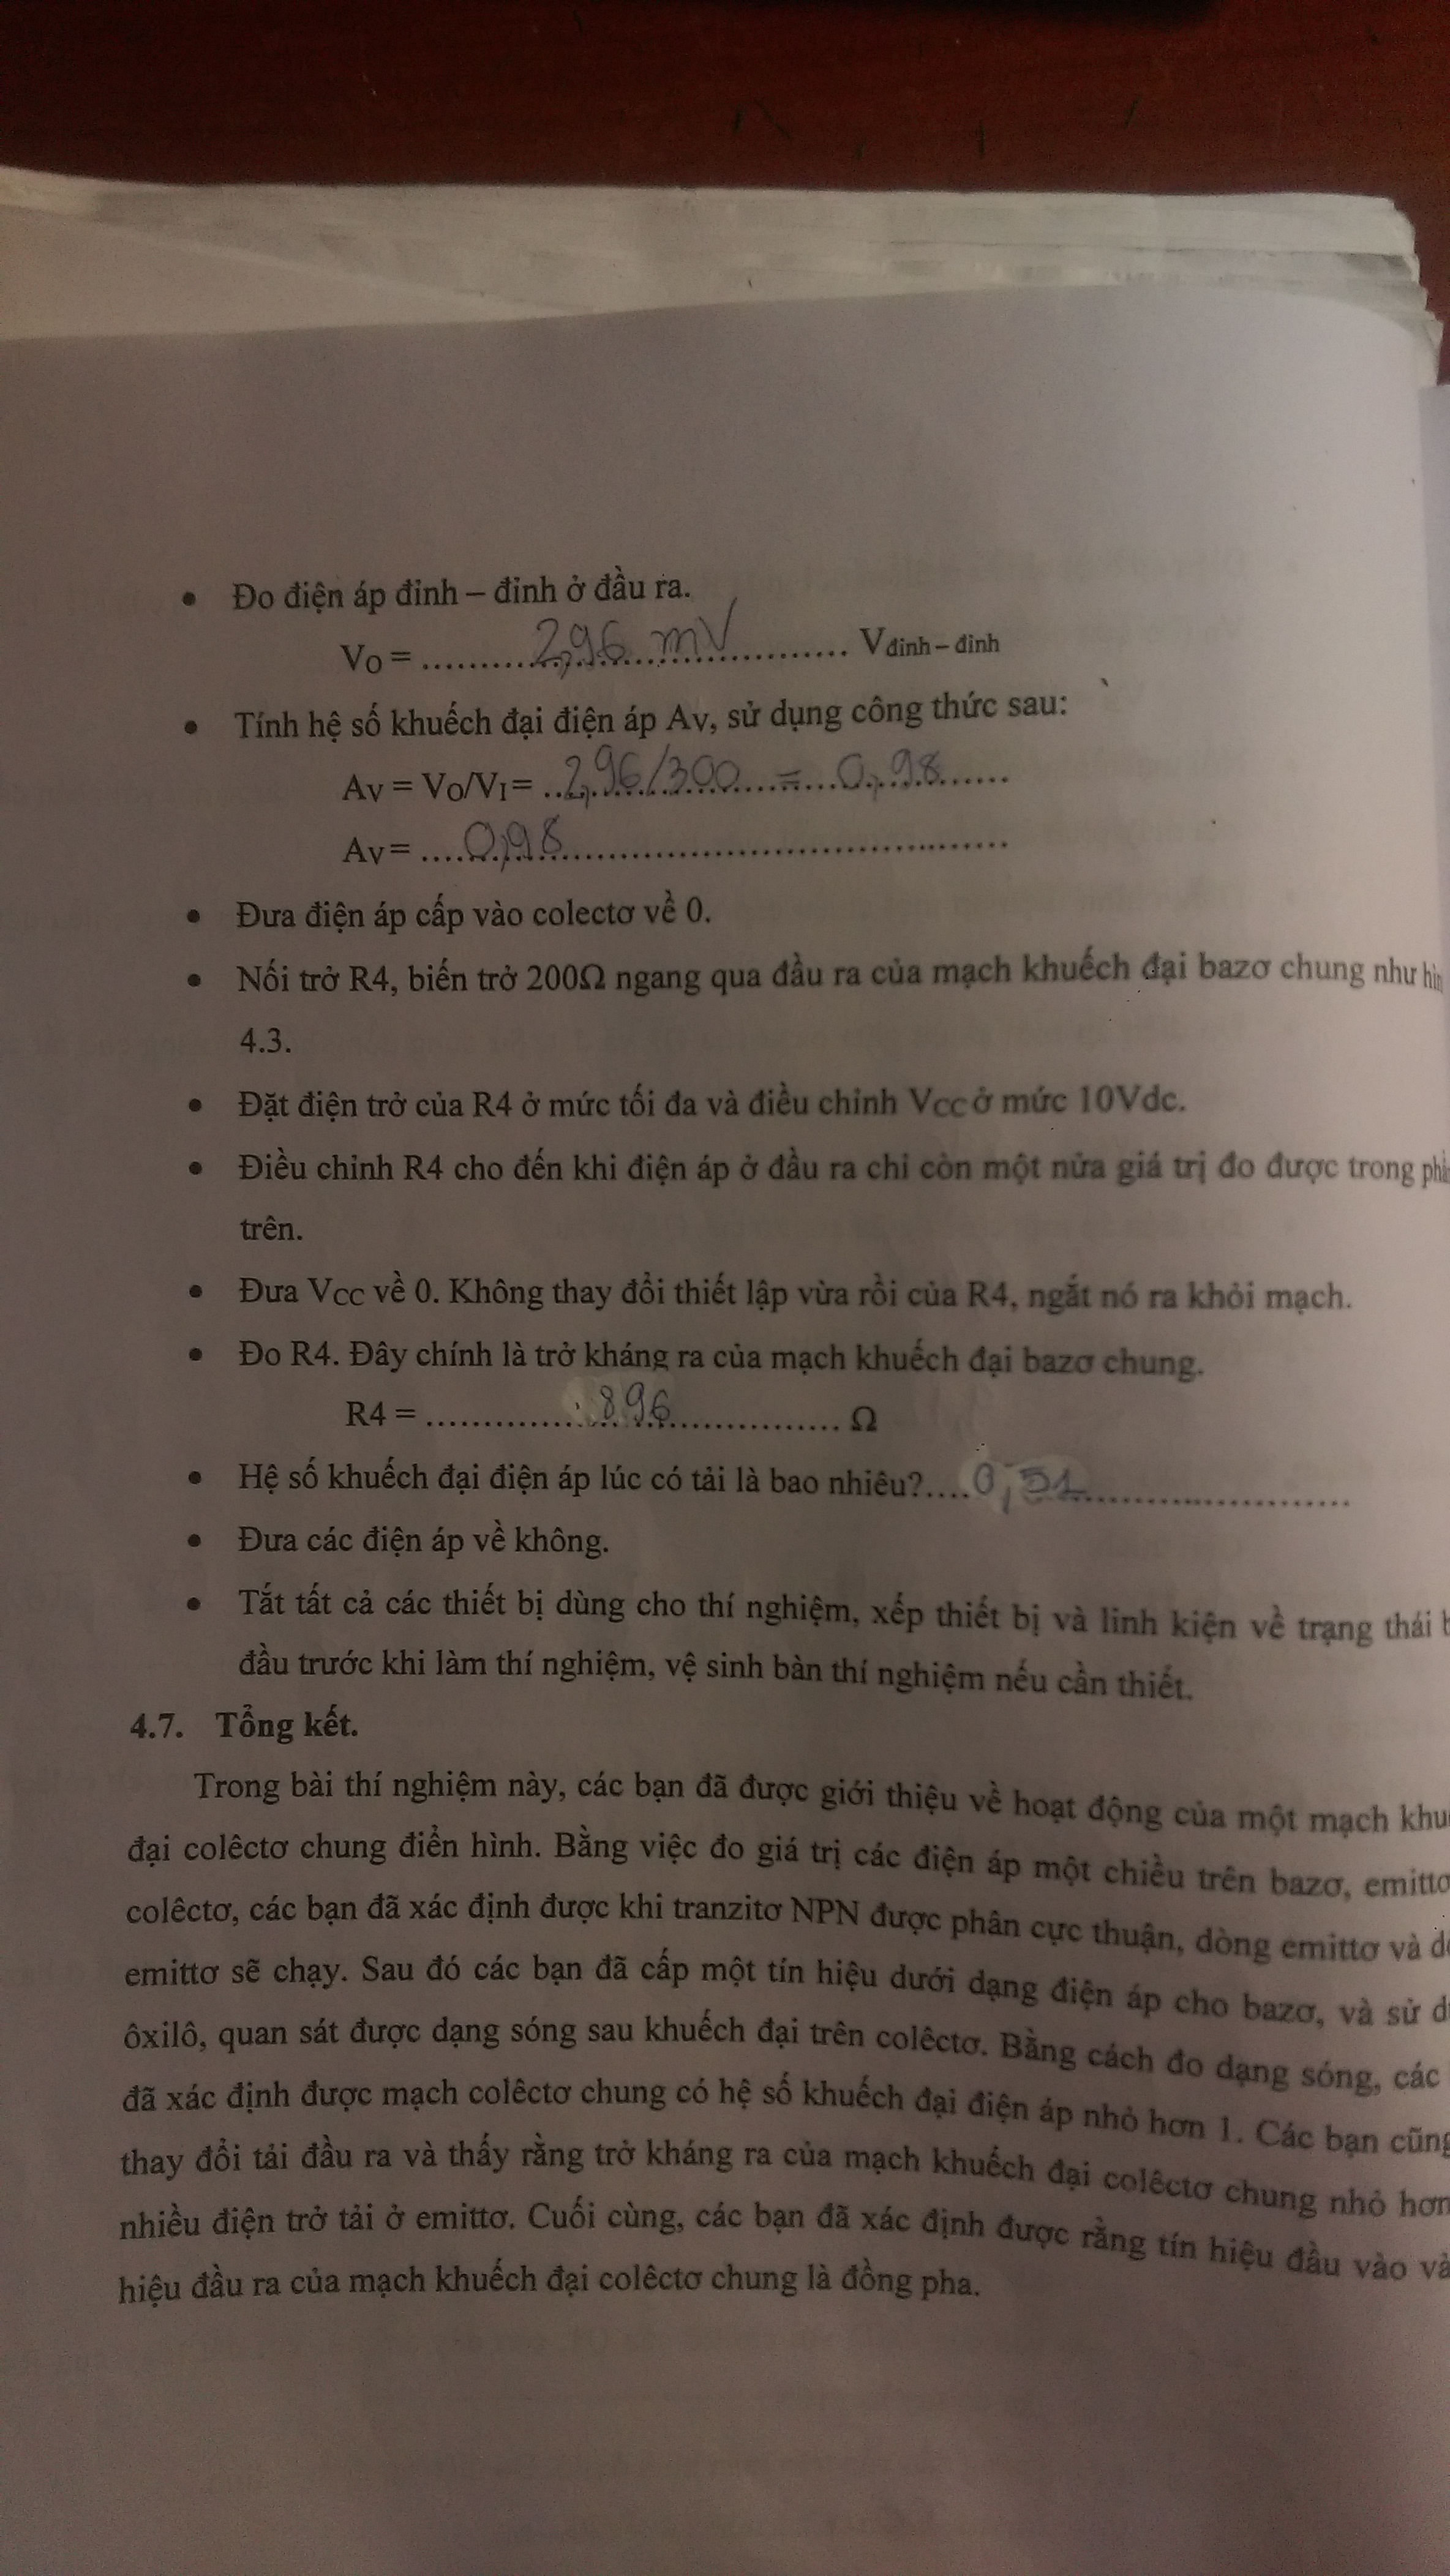 • Đo điện áp đỉnh – đỉnh ở đầu ra.
VO = ........2,96 mV........ Vđỉnh – đỉnh
• Tính hệ số khuếch đại điện áp AV, sử dụng công thức sau:
AV = VO/VI= ..2,96/300....=....0,98......
AV= ....0,98..............................
• Đưa điện áp cấp vào colectơ về 0.
• Nối trở R4, biến trở 200Ω ngang qua đầu ra của mạch khuếch đại bazơ chung như
4.3.
• Đặt điện trở của R4 ở mức tối đa và điều chỉnh VCC ở mức 10Vdc.
• Điều chỉnh R4 cho đến khi điện áp ở đầu ra chỉ còn một nửa giá trị đo được trong
trên.
• Đưa VCC về 0. Không thay đổi thiết lập vừa rồi của R4, ngắt nó ra khỏi mạch.
• Đo R4. Đây chính là trở kháng ra của mạch khuếch đại bazơ chung.
R4 = ..............896.............. Ω
• Hệ số khuếch đại điện áp lúc có tải là bao nhiêu?....0,51....................
• Đưa các điện áp về không.
• Tắt tất cả các thiết bị dùng cho thí nghiệm, xếp thiết bị và linh kiện về trạng thái
đầu trước khi làm thí nghiệm, vệ sinh bàn thí nghiệm nếu cần thiết.
4.7. Tổng kết.
Trong bài thí nghiệm này, các bạn đã được giới thiệu về hoạt động của một mạch
đại colêctơ chung điển hình. Bằng việc đo giá trị các điện áp một chiều trên bazơ, emittơ
colêctơ, các bạn đã xác định được khi tranzitơ NPN được phân cực thuận, dòng emittơ và
emittơ sẽ chạy. Sau đó các bạn đã cấp một tín hiệu dưới dạng điện áp cho bazơ, và sử
ôxilô, quan sát được dạng sóng sau khuếch đại trên colêctơ. Bằng cách đo dạng sóng, các
đã xác định được mạch colêctơ chung có hệ số khuếch đại điện áp nhỏ hơn 1. Các bạn cũng
thay đổi tải đầu ra và thấy rằng trở kháng ra của mạch khuếch đại colêctơ chung nhỏ hơn
nhiều điện trở tải ở emittơ. Cuối cùng, các bạn đã xác định được rằng tín hiệu đầu vào và
hiệu đầu ra của mạch khuếch đại colêctơ chung là đồng pha.